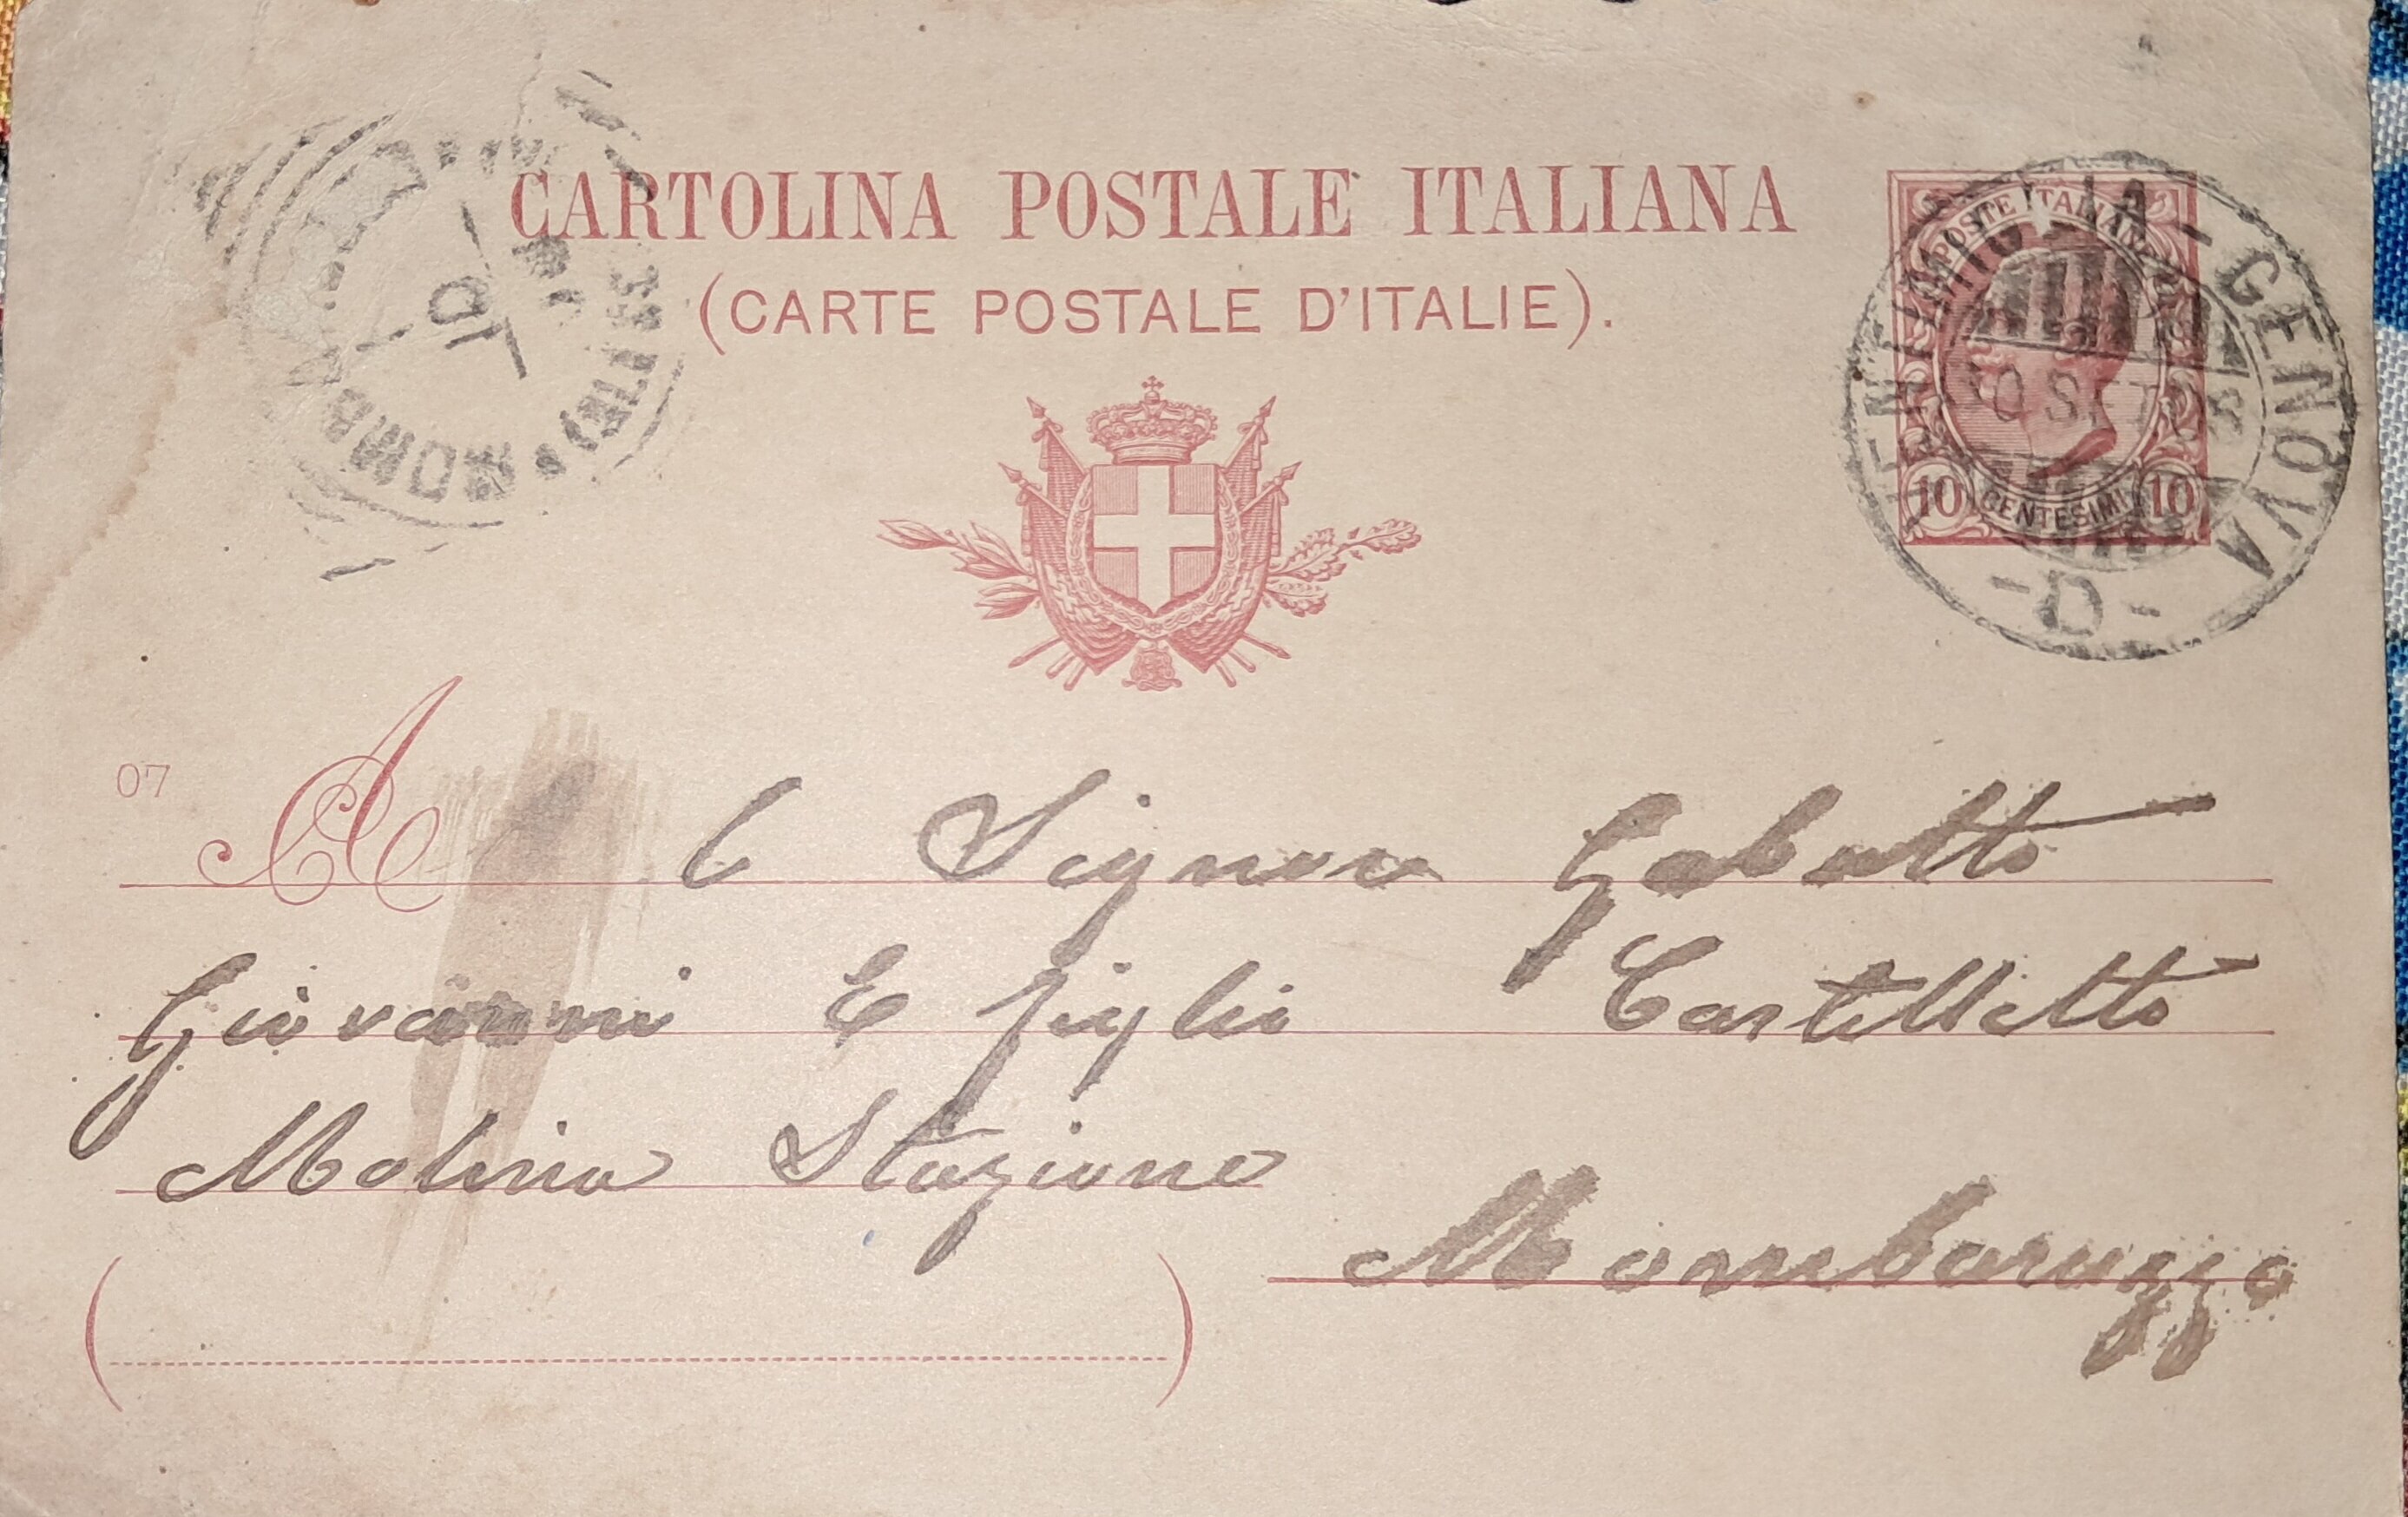 CARTOLINA POSTALE ITALIANA
(CARTE POSTALE D'ITALIE).
POSTE ITALIANE
10 CENTESIMI 10
VENTIMIGLIA - GENOVA
10 SET 08
- D -
10
07
A l Signor Gabutto
Giovanni E figlio Castelletto
Molina Stazione
Mombaruzzo